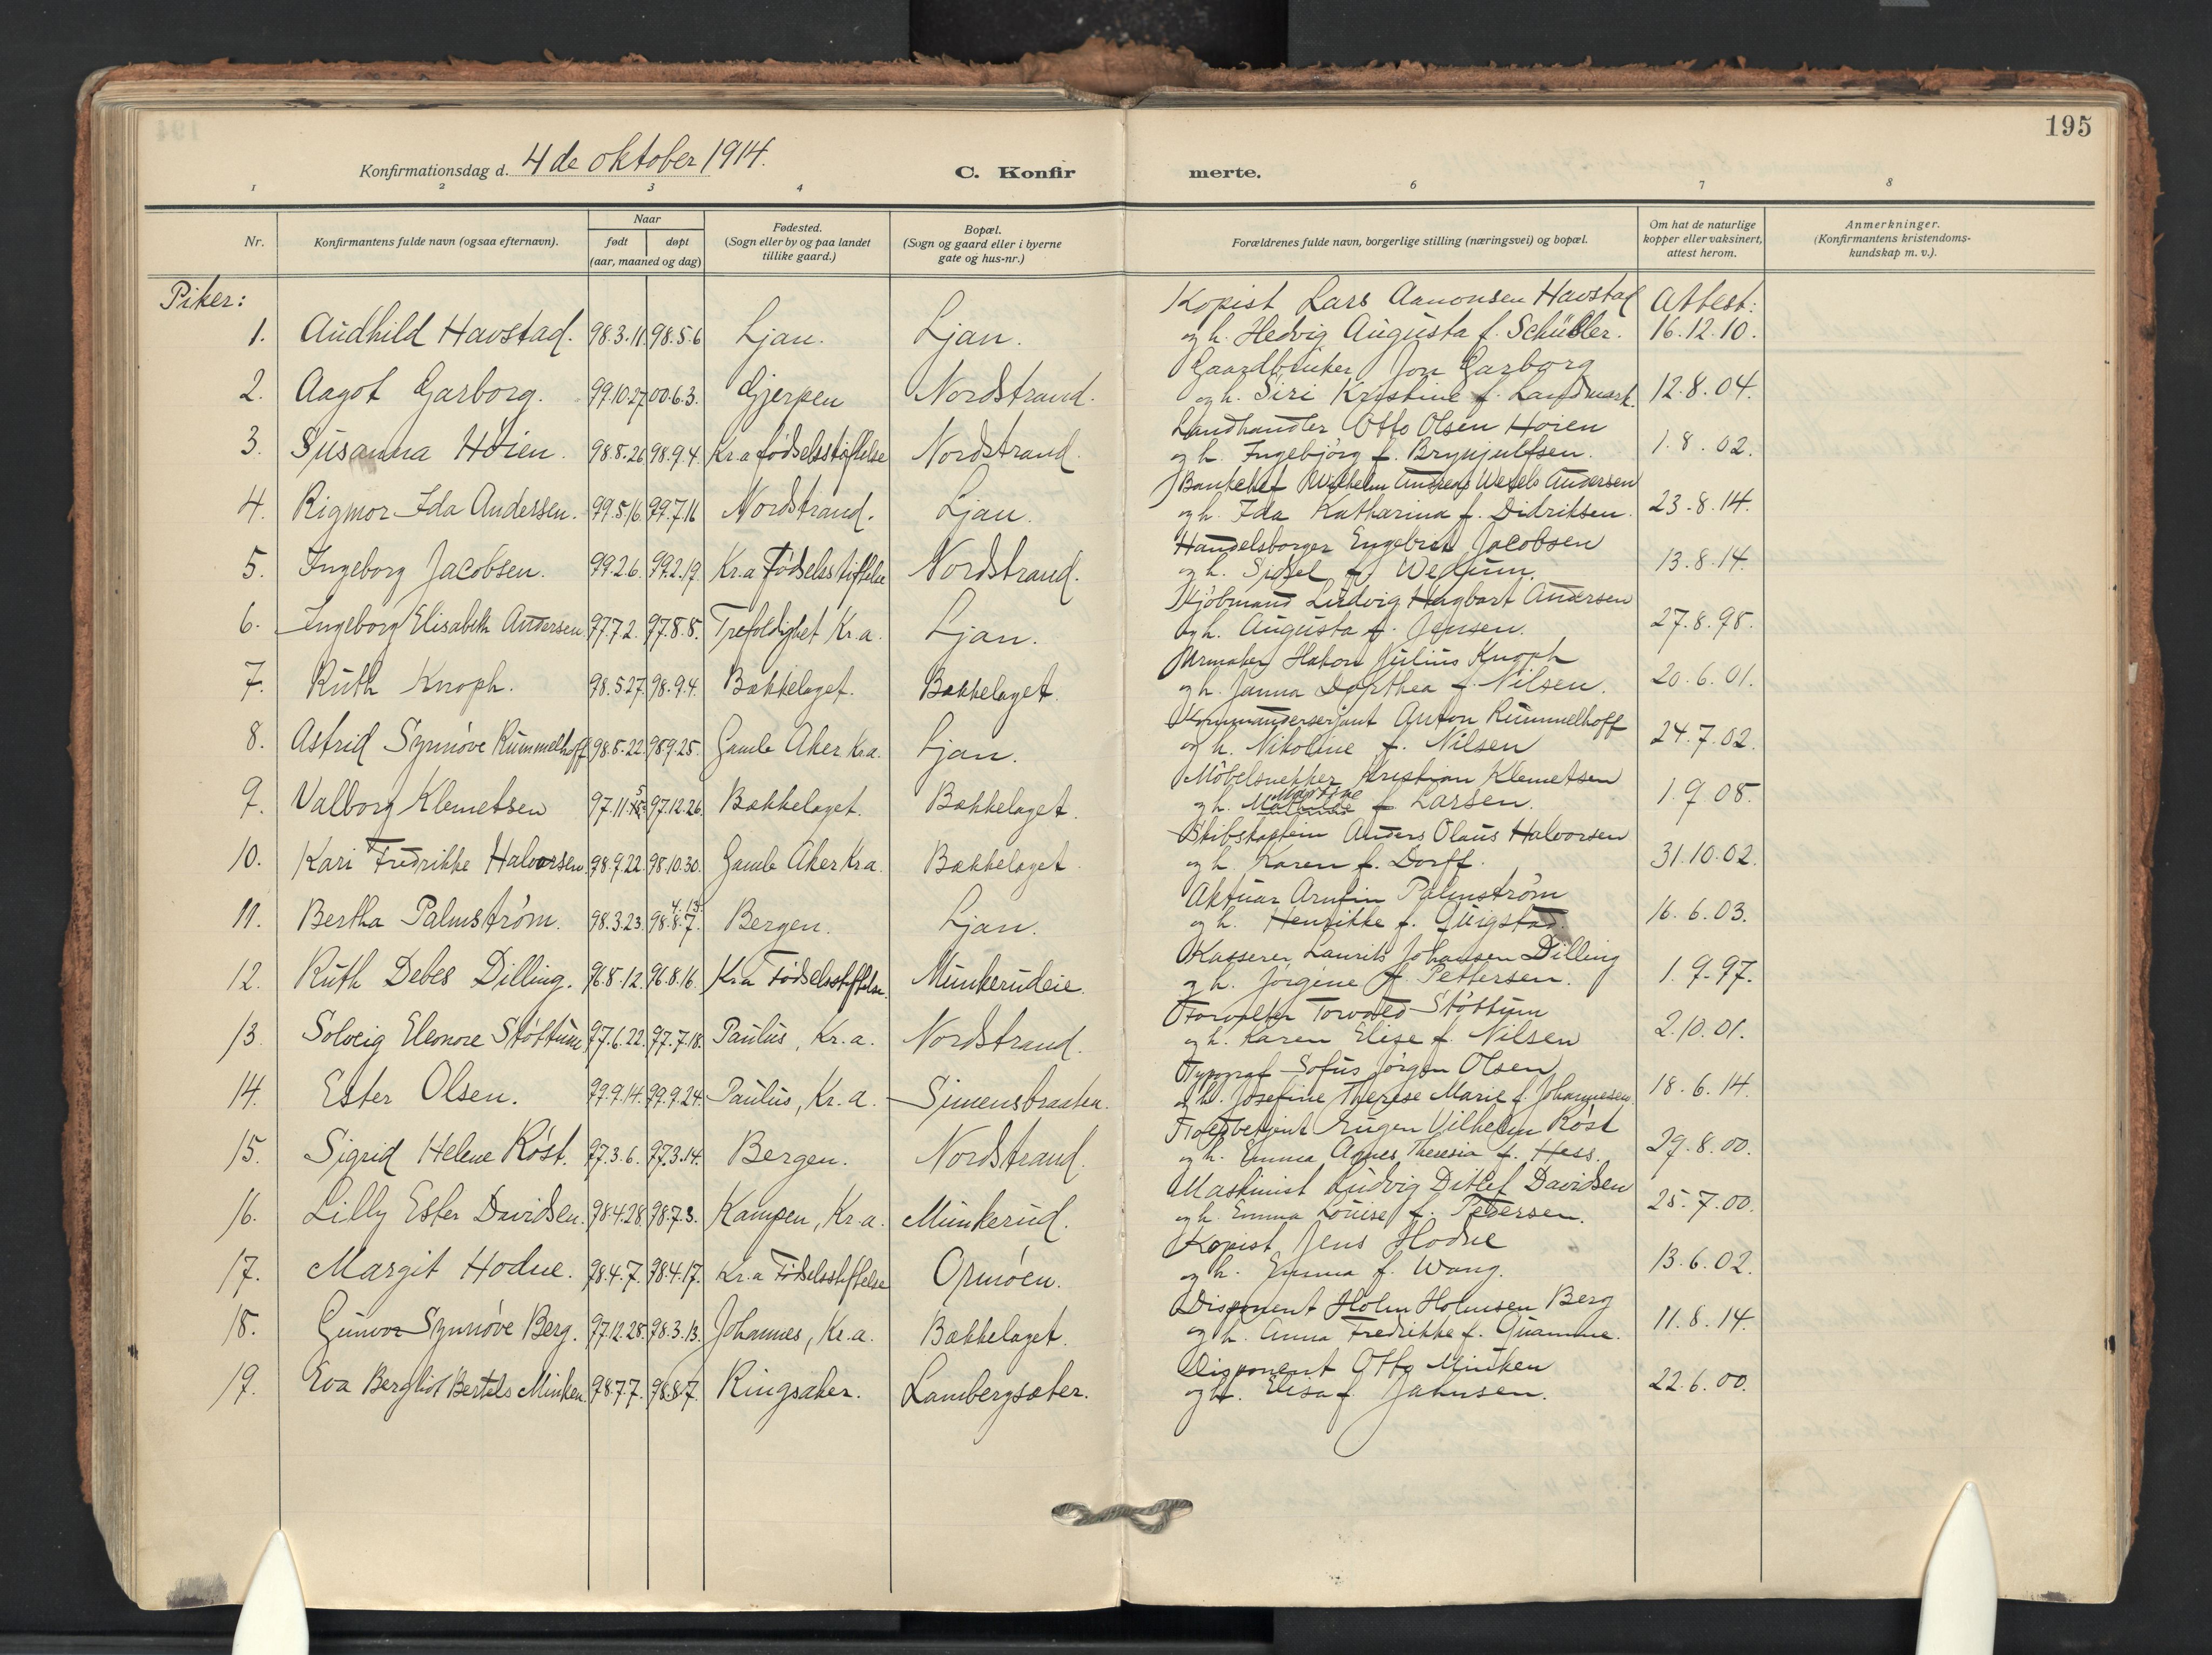 195
Konfirmationsdag d. 4 de oktober 1914.
C. Konfirmerte.
1 2 3 4 6 7 8
Nr.
Konfirmantens fulde navn (ogsaa efternavn).
Naar
født døpt
(aar, maaned og dag)
Fødested.
(Sogn eller by og paa landet
tillike gaard.)
Bopæl.
(Sogn og gaard eller i byerne
gate og hus-nr.)
Forældrenes fulde navn, borgerlige stilling (næringsvei) og bopæl.
Om hat de naturlige
kopper eller vaksinert,
attest herom.
Anmerkninger.
(Konfirmantens kristendoms-
kundskap m. v.).
Piker:
Kopist Lars Aamonsen Havstad Attest:
1. Audhild Havstad. 98.3.11 98.5.6 Ljan. Ljan. og h. Hedvig Augusta f. Schüssler. 16.12.10.
Gaardbruker Jon Garborg
2. Aagot Garborg. 99.10.27 00.6.3. Gjerpen Nordstrand. og h. Siri Kristine f. Landmark. 12.8.04.
Landhandler Otto Olsen Höien
3. Susanna Höien. 98.8.26 98.9.4. Kr.a födselsstiftelse Nordstrand. og h. Ingebjörg f. Brynjulfsen. 1.8.02.
Bankchef Wilhelm Andreas Wesels Andersen
4. Rigmor Ida Andersen. 99.5.16 99.7.16 Nordstrand. Ljan. og h. Ida Katharina f. Didriksen. 23.8.14.
Handelsborger Engebret Jacobsen
5. Ingeborg Jacobsen. 99.2.6. 99.2.19. Kr.a Födselsstiftelse Nordstrand. og h. Sidsel f. 13.8.14.
Kjöbmand Ludvig Hagbart Andersen
6. Ingeborg Elisabeth Andersen 97.7.2. 97.8.8. Trefoldighet Kr.a. Ljan. og h. Augusta f. Jensen. 27.8.98.
Urmaker Hakon Julius Knoph
7. Ruth Knoph. 98.5.27. 98.9.4. Bækkelaget. Bækkelaget. og h. Janna Dorthea f. Nilsen. 20.6.01.
Kommandersersjant Anton Rummelhoff
8. Astrid Synnöve Rummelhoff 98.8.22. 98.9.25. Gamle Aker Kr.a. Ljan. og h. Nikoline f. Nilsen 24.7.02.
Möbelsnekker Kristian Klemetsen
9. Valborg Klemetsen 97.11.5 97.12.26. Bækkelaget. Bækkelaget. og h. Mathilde Martine f. Larsen. 1.9.08.
Skibskaptein Anders Olaus Halvorsen
10. Kari Fredrikke Halvorsen. 98.9.22. 98.10.30. Gamle Aker Kr.a. Bækkelaget. og h. Karen f. Dorff. 31.10.02.
Aktuar Arnfin Palmström
11. Bertha Palmström. 98.3.23. 98.8.7. 4.13. Bergen. Ljan. og h. Henrikke f. Quigstad. 16.6.03.
Kasserer Laurits Johansen Dilling
12. Ruth Debes Dilling. 96.8.12. 96.8.16. Kr.a Födselsstiftelse. Munkerudeie. og h. Jörgine f. Pettersen. 1.9.97.
Forvalter Torvald Stöttum
13. Solveig Elenore Stöttum 97.6.22. 97.7.18. Paulus, Kr.a. Nordstrand. og h. Karen Elise f. Nilsen 2.10.01.
Typograf Sofus Jörgen Olsen
14. Ester Olsen. 99.9.14. 99.9.24. Paulus, Kr.a. Simensbraaten. og h. Josefine Therese Marie f. Johannesen. 18.6.14.
Eugen Vilhelm Röst
15. Sigrid Helene Röst. 97.3.6. 97.3.14. Bergen. Nordstrand. og h. Emma Agnes Theresia f. Hess. 29.8.00.
Maskinist Ludvig Ditlef Davidsen
16. Lilly Ester Davidsen. 98.4.28. 98.7.3. Kampen, Kr.a. Munkerud. og h. Emma Louise f. Pedersen. 25.7.00.
Kopist Jens Hodne
17. Margit Hodne. 98.4.7. 98.4.17. Kr.a Födselsstiftelse Ormöen. og h. Emma f. Wang. 13.6.02.
Disponent Holm Holmsen Berg
18. Gunvor Synnöve Berg. 97.12.28. 98.3.13. Johannes, Kr.a. Bækkelaget. og h. Anna Fredrikke f. Quamme. 11.8.14.
Disponent Otto Minken
19. Eva Bergliot Bertels Minken. 98.7.7. 98.8.7. Ringsaker. Lambergsæter. og h. Elisa f. Jahnsen. 22.6.00.